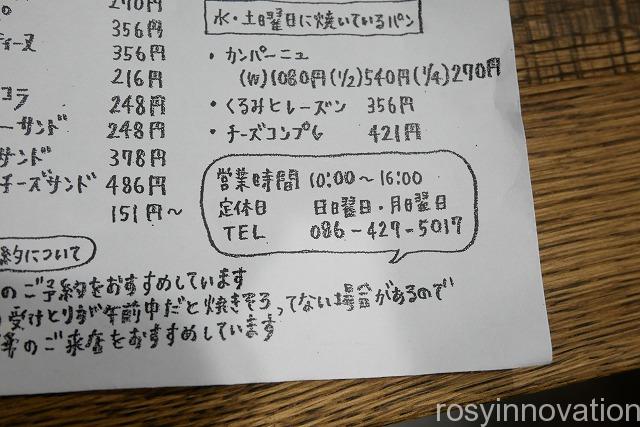 270円
356円
ディーヌ 356円
216円
コラ 248円
ーサンド 248円
サンド 378円
チーズサンド 486円
151円〜
水・土日曜日に焼いているパン
・カンパーニュ
(W)1080円(1/2)540円(1/4)270円
・くるみとレーズン 356円
・チーズコンプレ 421円
営業時間 10:00〜16:00
定休日 日曜日・月曜日
TEL 086-427-5017
約について
のご予約をおすすめしています
受けとりが午前中だと焼きそろってない場合があるので
のご来店をおすすめしています
rosyinnovation